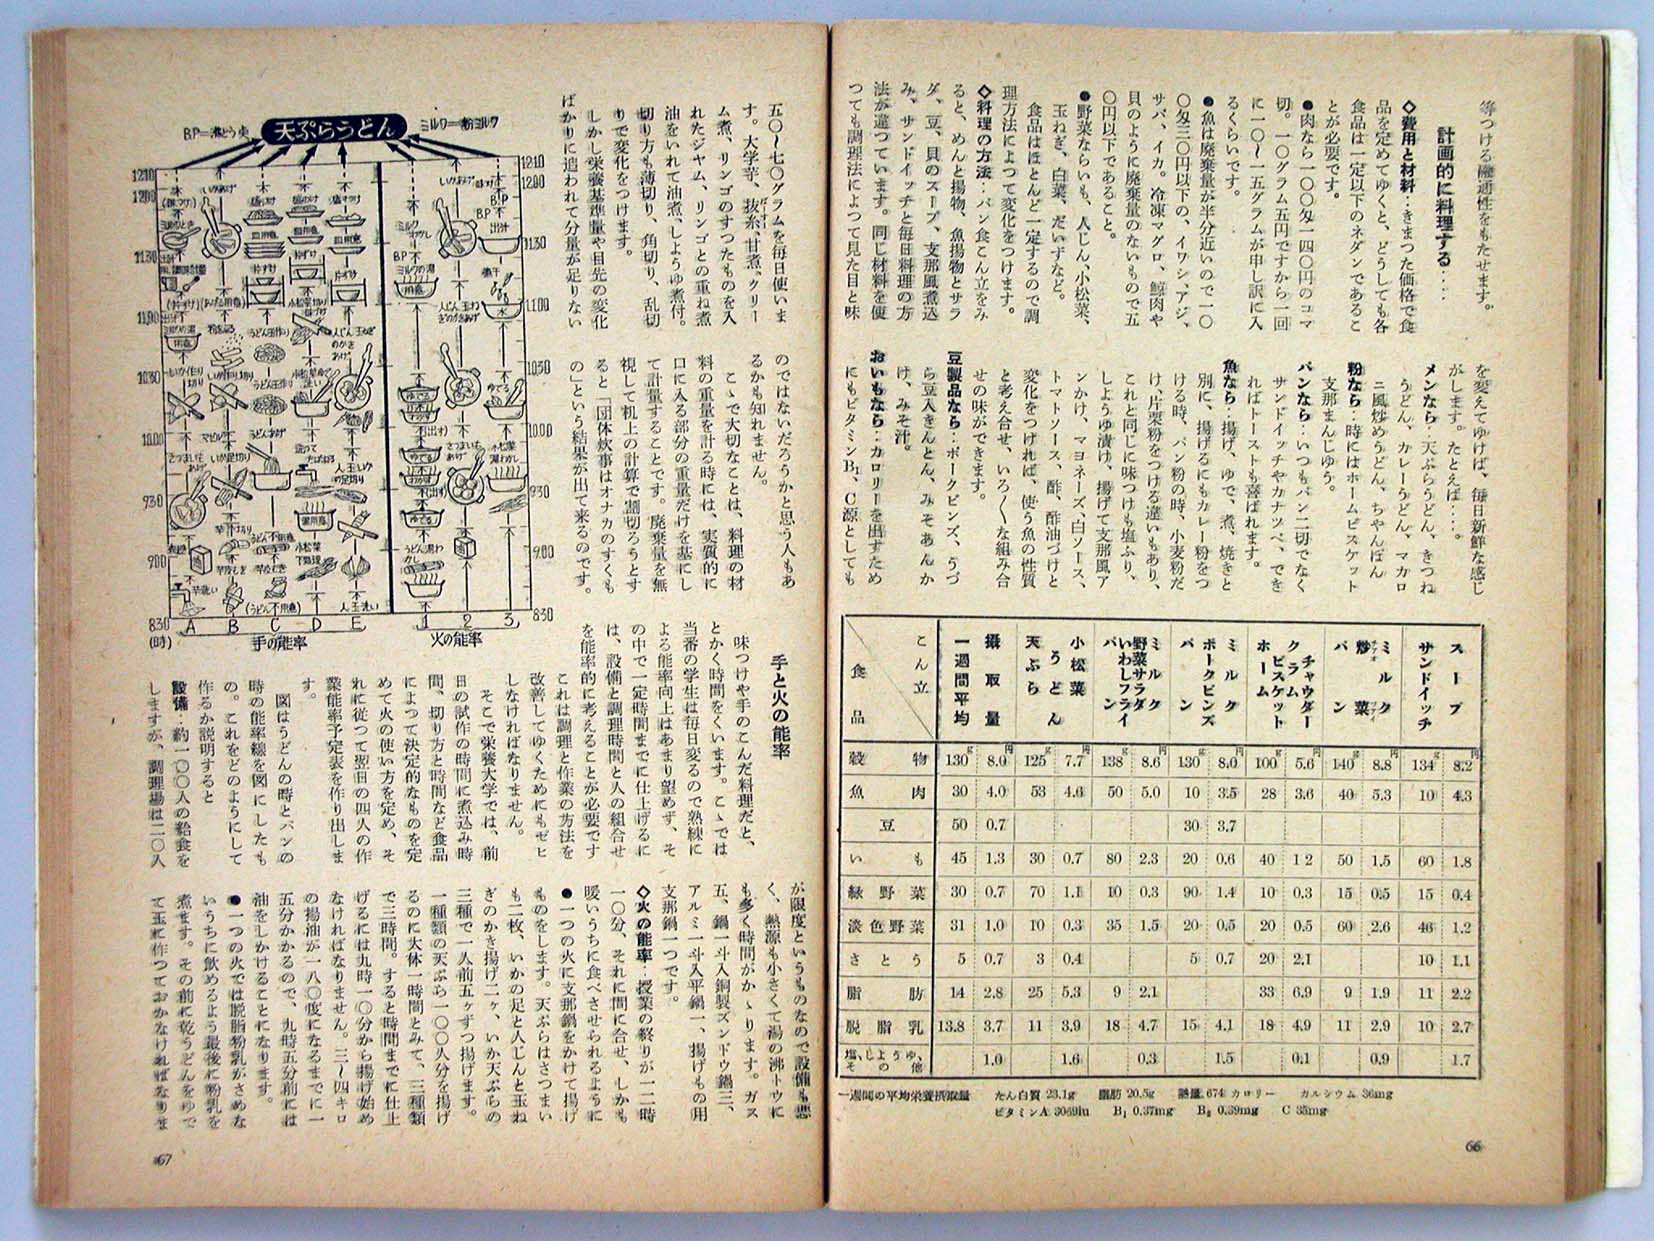 等つける融通性をもたせます。
計画的に料理する‥‥
◇費用と材料‥きまつた価格で食
品を定めてゆくと、どうしても各
食品は一定以下のネダンであるこ
とが必要です。
●肉なら一〇〇匁一四〇円のコマ
切。一〇グラム五円ですから一回
に一〇〜一五グラムが申し訳に入
るくらいです。
●魚は廃棄量が半分近いので一〇
〇匁三〇円以下の、イワシ、アジ、
サバ、イカ。冷凍マグロ、鯨肉や
貝のように廃棄量のないもので五
〇円以下であること。
●野菜ならいも、人じん、小松菜、
玉ねぎ、白菜、だいずなど。
食品はほとんど一定するので調
理方法によつて変化をつけます。
◇料理の方法‥パン食こん立をみ
ると、めんと揚物、魚揚物とサラ
ダ、豆、貝のスープ、支那風煮込
み、サンドイッチと毎日料理の方
法が違つています。同じ材料を使
つても調理法によつて見た目と味
を変えてゆけば、毎日新鮮な感じ
がします。たとえば‥‥。
メンなら‥天ぷらうどん、きつね
うどん、カレーうどん、マカロ
ニ風炒めうどん、ちゃんぽん
粉なら‥時にはホームビスケット
支那まんじゆう。
パンなら‥いつもパン二切でなく
サンドイッチやカナッペ、でき
ればトーストも喜ばれます。
魚なら‥揚げ、ゆで、煮、焼きと
別に、揚げるにもカレー粉をつ
ける時、パン粉の時、小麦粉だ
け、片栗粉をつける違いもあり、
これと同じに味つけも塩ふり、
しようゆ漬け、揚げて支那風ア
ンかけ、マヨネーズ、白ソース、
トマトソース、酢、酢油づけと
変化をつければ、使う魚の性質
と考え合せ、いろ〱な組み合
せの味ができます。
豆製品なら‥ポークビンズ、うづ
ら豆入きんとん、みそあんか
け、みそ汁。
おいもなら‥カロリーを出すため
にもビタミンB₁、C源としても
こん立 食品 一週間平均摂取量 天ぷらうどん小松菜 パンいわしフライ野菜サラダミルク パンポークビンズミルク ホームビスケットクラムチャウダー パン炒菜ミルク サンドイッチスープ
穀物 130g 8.0円 125g 7.7円 138g 8.6円 130g 8.0円 100g 5.6円 140g 8.8円 134g 8.2円
魚肉 30 4.0 53 4.6 50 5.0 10 3.5 28 3.6 40 5.3 10 4.3
豆 50 0.7 30 3.7
いも 45 1.3 30 0.7 80 2.3 20 0.6 40 1 2 50 1.5 60 1.8
緑野菜 30 0.7 70 1.1 10 0.3 90 1.4 10 0.3 15 0.5 15 0.4
淡色野菜 31 1.0 10 0.3 35 1.5 20 0.5 20 0.5 60 2.6 46 1.2
さとう 5 0.7 3 0.4 5 0.7 20 2.1 10 1.1
脂肪 14 2.8 25 5.3 9 2.1 33 6.9 9 1.9 11 2.2
脱脂乳 13.8 3.7 11 3.9 18 4.7 15 4.1 18 4.9 11 2.9 10 2.7
塩、しようゆ、その他 1.0 1.6 0.3 1.5 0.1 0.9 1.7
一週間の平均栄養摂取量 たん白質 23.1g 脂肪 20.5g 熱量 674カロリー カルシウム 36mg
ビタミンA 3069iu B₁ 0.37mg B₂ 0.39mg C 35mg
66
五〇〜七〇グラムを毎日使いま
す。大学芋、抜糸、甘煮、クリー
ム煮、リンゴのすつたものを入
れたジャム、リンゴとの重ね煮
油をいれて油煮、しようゆ煮付。
切り方も薄切り、角切り、乱切
りで変化をつけます。
しかし栄養基準量や目先の変化
ばかりに追われて分量が足りない
のではないだろうかと思う人もあ
るかも知れません。
こゝで大切なことは、料理の材
料の重量を計る時には、実質的に
口に入る部分の重量だけを基にし
て計量することです。廃棄量を無
視して机上の計算で割切ろうとす
ると「団体炊事はオナカのすくも
の」という結果が出て来るのです。
天ぷらうどん
B.P=沸とう点
ミルク=粉ミルク
12.10
12.00
11.30
11.00
10.30
10.00
9.30
9.00
8.30
(時)
A B C D E 1 2 3
手の能率
火の能率
手と火の能率
味つけや手のこんだ料理だと、
とかく時間をくいます。こゝでは
当番の学生は毎日変るので熟練に
よる能率向上はあまり望めず、そ
の中で一定時間までに仕上げるに
は、設備と調理時間と人の組合せ
を能率的に考えることが必要です
これは調理と作業の方法を
改善してゆくためにもゼヒ
しなければなりません。
そこで栄養大学では、前
日の試作の時間に煮込み時
間、切り方と時間など食品
によつて決定的なものを定
めて火の使い方を定め、そ
れに従つて翌日の四人の作
業能率予定表を作り出しま
す。
図はうどんの時とパンの
時の能率線を図にしたも
の。これをどのようにして
作るか説明すると
設備‥約一〇〇人の給食を
しますが、調理場は二〇人
が限度というものなので設備も悪
く、熱源も小さくて湯の沸トウに
も多く時間がかゝります。ガス
五、鍋一斗入銅製ズンドウ鍋三、
アルミ一斗入平鍋一、揚げもの用
支那鍋一つです。
◇火の能率‥授業の終りが一二時
一〇分、それに間に合せ、しかも
暖いうちに食べさせられるように
●一つの火に支那鍋をかけて揚げ
ものをします。天ぷらはさつまい
も二枚、いかの足と人じんと玉ね
ぎのかき揚げ二ヶ、いか天ぷらの
三種で一人前五ヶずつ揚げます。
一種類の天ぷら一〇〇人分を揚げ
るのに大体一時間とみて、三種類
で三時間。すると時間までに仕上
げるには九時一〇分から揚げ始め
なければなりません。三〜四キロ
の揚油が一八〇度になるまでに一
五分かかるので、九時五分前には
油をしかけることになります。
●一つの火では脱脂粉乳がさめな
いうちに飲めるよう最後に粉乳を
煮ます。その前に乾うどんをゆで
て玉に作つておかなければなりま
67